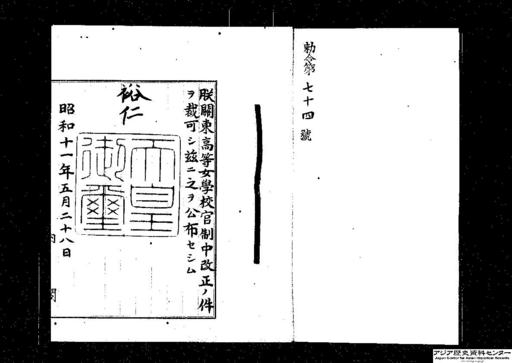 勅令第七十四號
朕關東高等女學校官制中改正ノ件
ヲ裁可シ茲ニ之ヲ公布セシム
裕仁
天皇御璽
昭和十一年五月二十八日
アジア歴史資料センター
Japan Center for Asian Historical Records